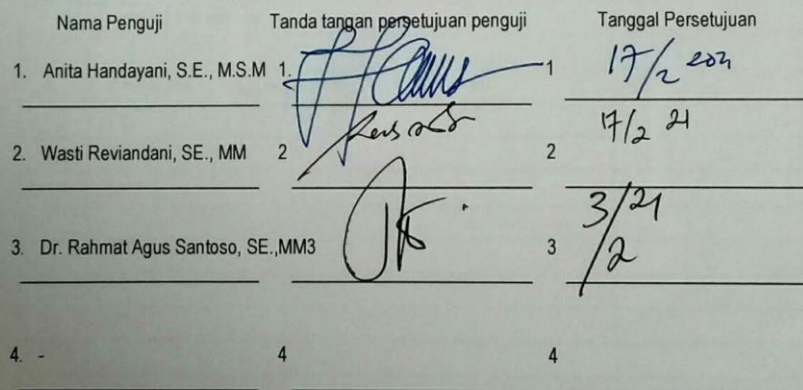 Nama Penguji Tanda tangan persetujuan penguji Tanggal Persetujuan
1. Anita Handayani, S.E., M.S.M 1. 1 17/2 2021
2. Wasti Reviandani, SE., MM 2 2 17/2 21
3. Dr. Rahmat Agus Santoso, SE.,MM3 3 3/2 21
4. - 4 4